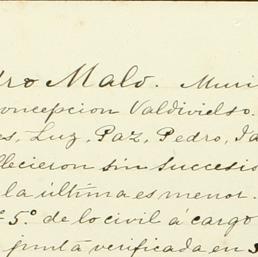 dro Malo. Muni
oncepcion Valdivielso.
es, Luz, Paz, Pedro, Ja
llecieron sin sucesio
la última es menor.
5º de lo civil á cargo
junta verificada en